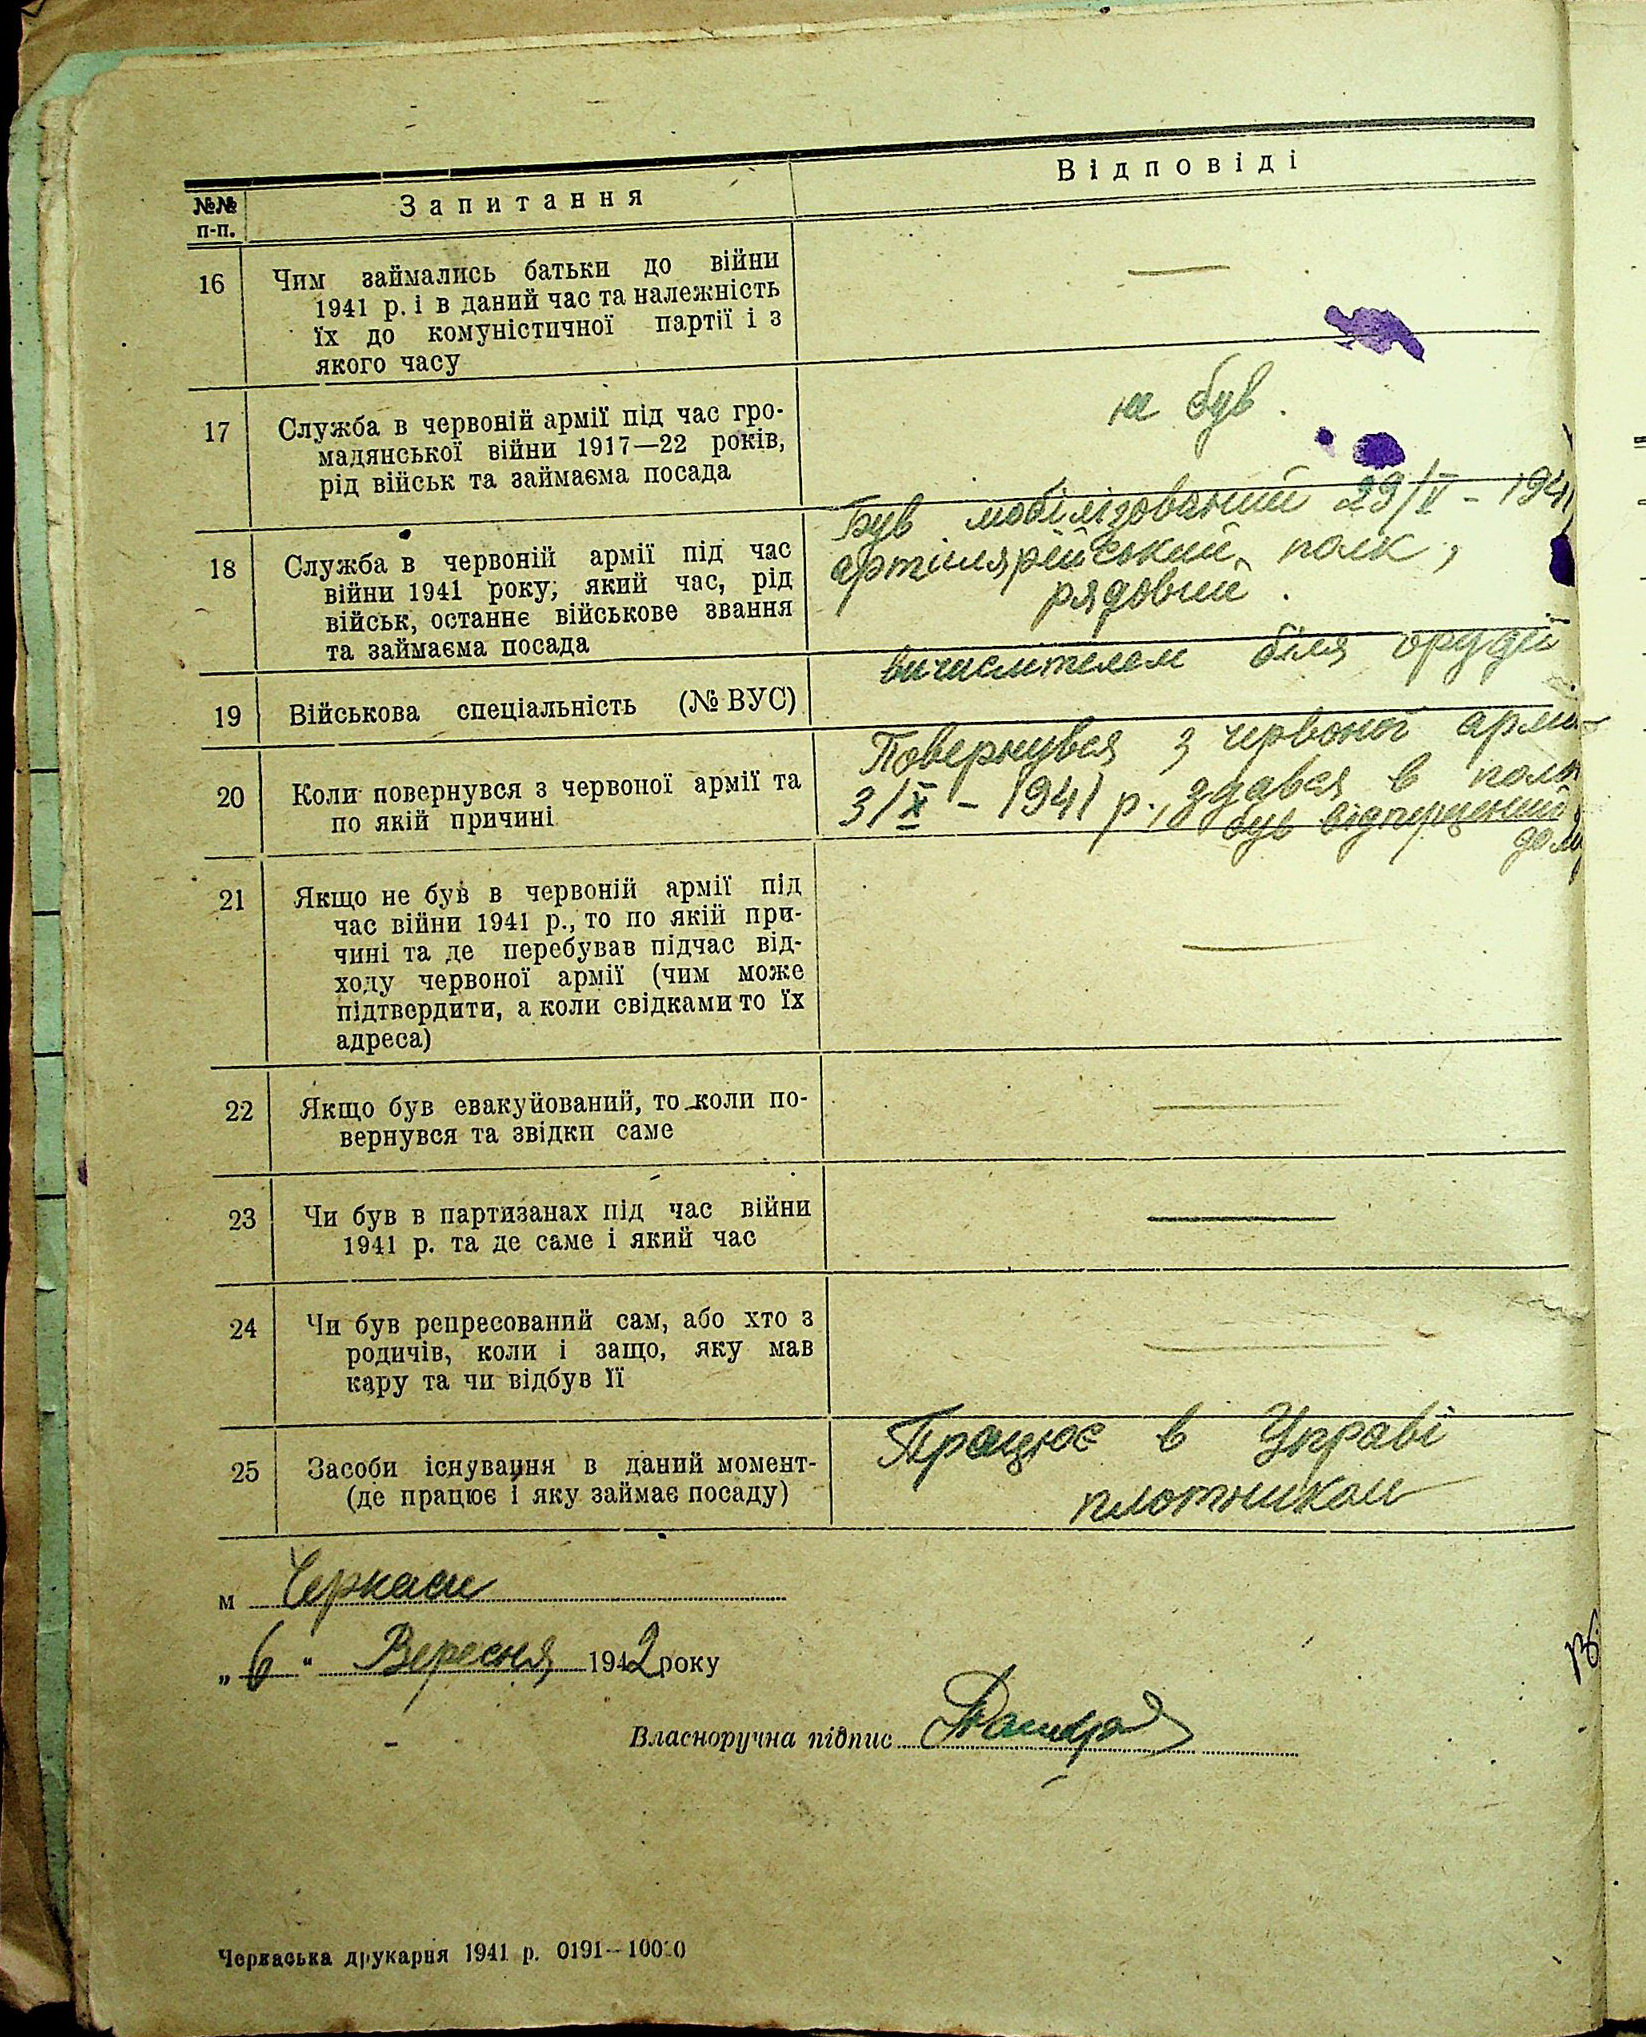 №№ п-п.
Запитання
Відповіді
16
Чим займались батьки до війни
1941 р. і в даний час та належність
їх до комуністичної партії і з
якого часу
—
17
Служба в червоній армії під час гро-
мадянської війни 1917—22 років,
рід військ та займаєма посада
не був.
18
Служба в червоній армії під час
війни 1941 року; який час, рід
військ, останнє військове звання
та займаєма посада
Був мобілізований 29/V - 1941
артілярійський полк,
рядовий.
19
Військова спеціальність (№ ВУС)
вичислителем біля орудії
20
Коли повернувся з червоної армії та
по якій причині
Повернувся з червоної армії
3/X - 1941 р., здався в полон
був відпущений
дому
21
Якщо не був в червоній армії під
час війни 1941 р., то по якій при-
чині та де перебував підчас від-
ходу червоної армії (чим може
підтвердити, а коли свідками то їх
адреса)
—
22
Якщо був евакуйований, то коли по-
вернувся та звідки саме
—
23
Чи був в партизанах під час війни
1941 р. та де саме і який час
—
24
Чи був репресований сам, або хто з
родичів, коли і защо, яку мав
кару та чи відбув її
—
25
Засоби існування в даний момент-
(де працює і яку займає посаду)
Працює в Управі
плотником
м Черкаси
„6" Вересня 1942 року
Власноручна підпис
Черкаська друкарня 1941 р. 0191—10000